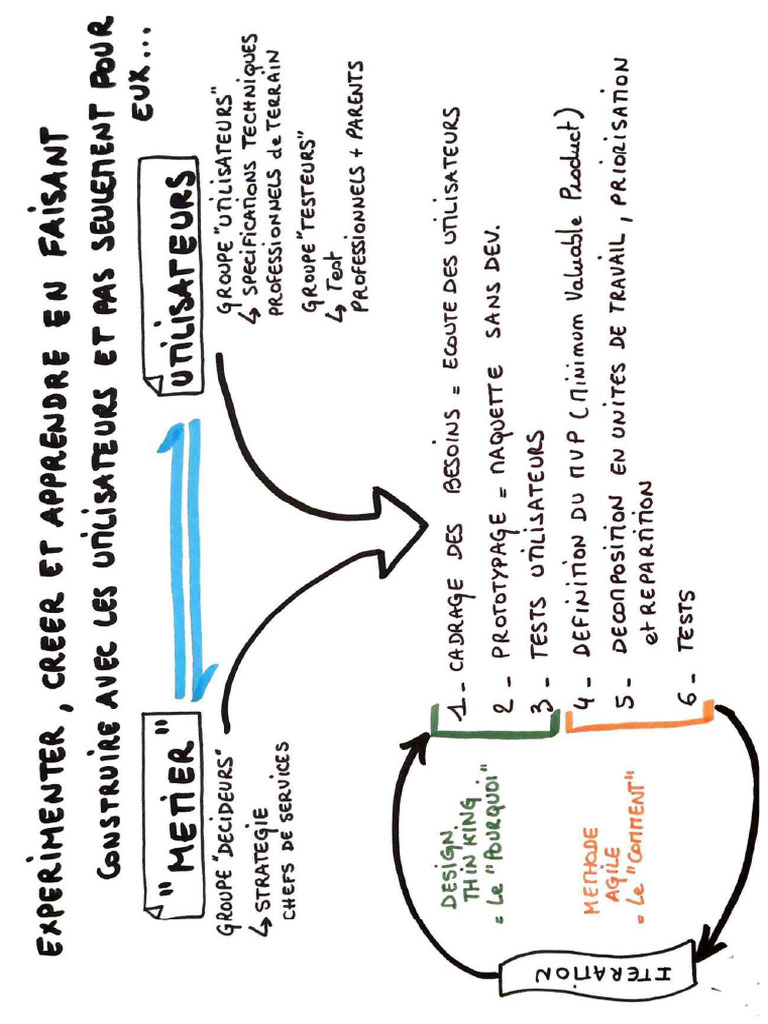 EXPERIMENTER, CREER ET APPRENDRE EN FAISANT
CONSTRUIRE AVEC LES UTILISATEURS ET PAS SEULEMENT POUR
EUX...
"METIER"
GROUPE "DECIDEURS"
↳ STRATEGIE
CHEFS DE SERVICES
UTILISATEURS
GROUPE "UTILISATEURS"
↳ SPECIFICATIONS TECHNIQUES
PROFESSIONNELS de TERRAIN
GROUPE "TESTEURS"
↳ Test
PROFESSIONNELS + PARENTS
DESIGN
THINKING
= Le "POURQUOI"
1 - CADRAGE DES BESOINS = ECOUTE DES UTILISATEURS
2 - PROTOTYPAGE = MAQUETTE SANS DEV.
3 - TESTS UTILISATEURS
METHODE
AGILE
= Le "COMMENT"
4 - DEFINITION DU MVP (Minimum Valuable Product)
5 - DECOMPOSITION EN UNITES DE TRAVAIL, PRIORISATION
et REPARTITION
6 - TESTS
ITERATION